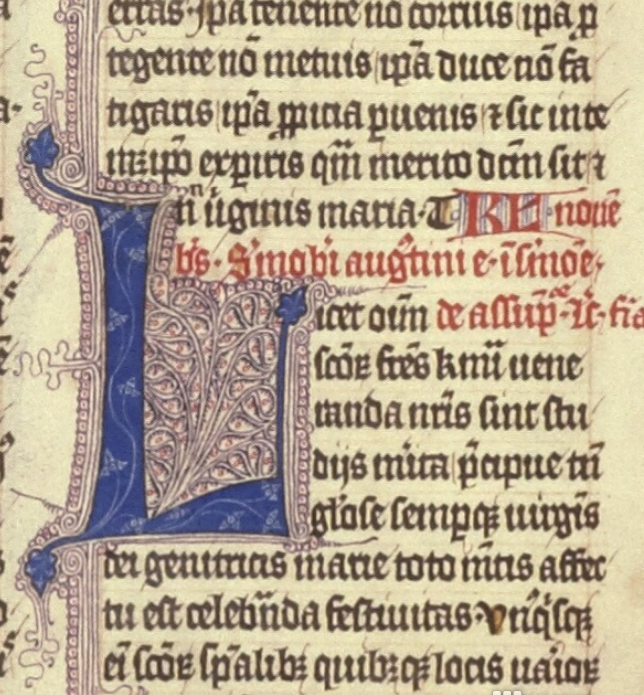 erras· Ipa tenente nō corruis ipa ꝓ
tegente nō metuis ipā duce nō fa
tigaris ipa ꝓpicia ꝑuenis ⁊ sic inte
ꝑiris qm̄ merito dcm̄ sit ⁊
uiginis maria· T KL nouē
bs· Smo bi augtini e.
icet oīm de assūp
scōꝝ frēs kmī uene
randa nrīs sint stu
dijs mīta p̄cipue tn̄
glōse sempꝙ uirgīs
dei genitricis marie toto mītis affec
tu est celebn̄da festiuitas· Vnꝰqͥsqꝫ
ei scōꝝ spālibꝫ quibꝫcqꝫ locis uaioꝝ